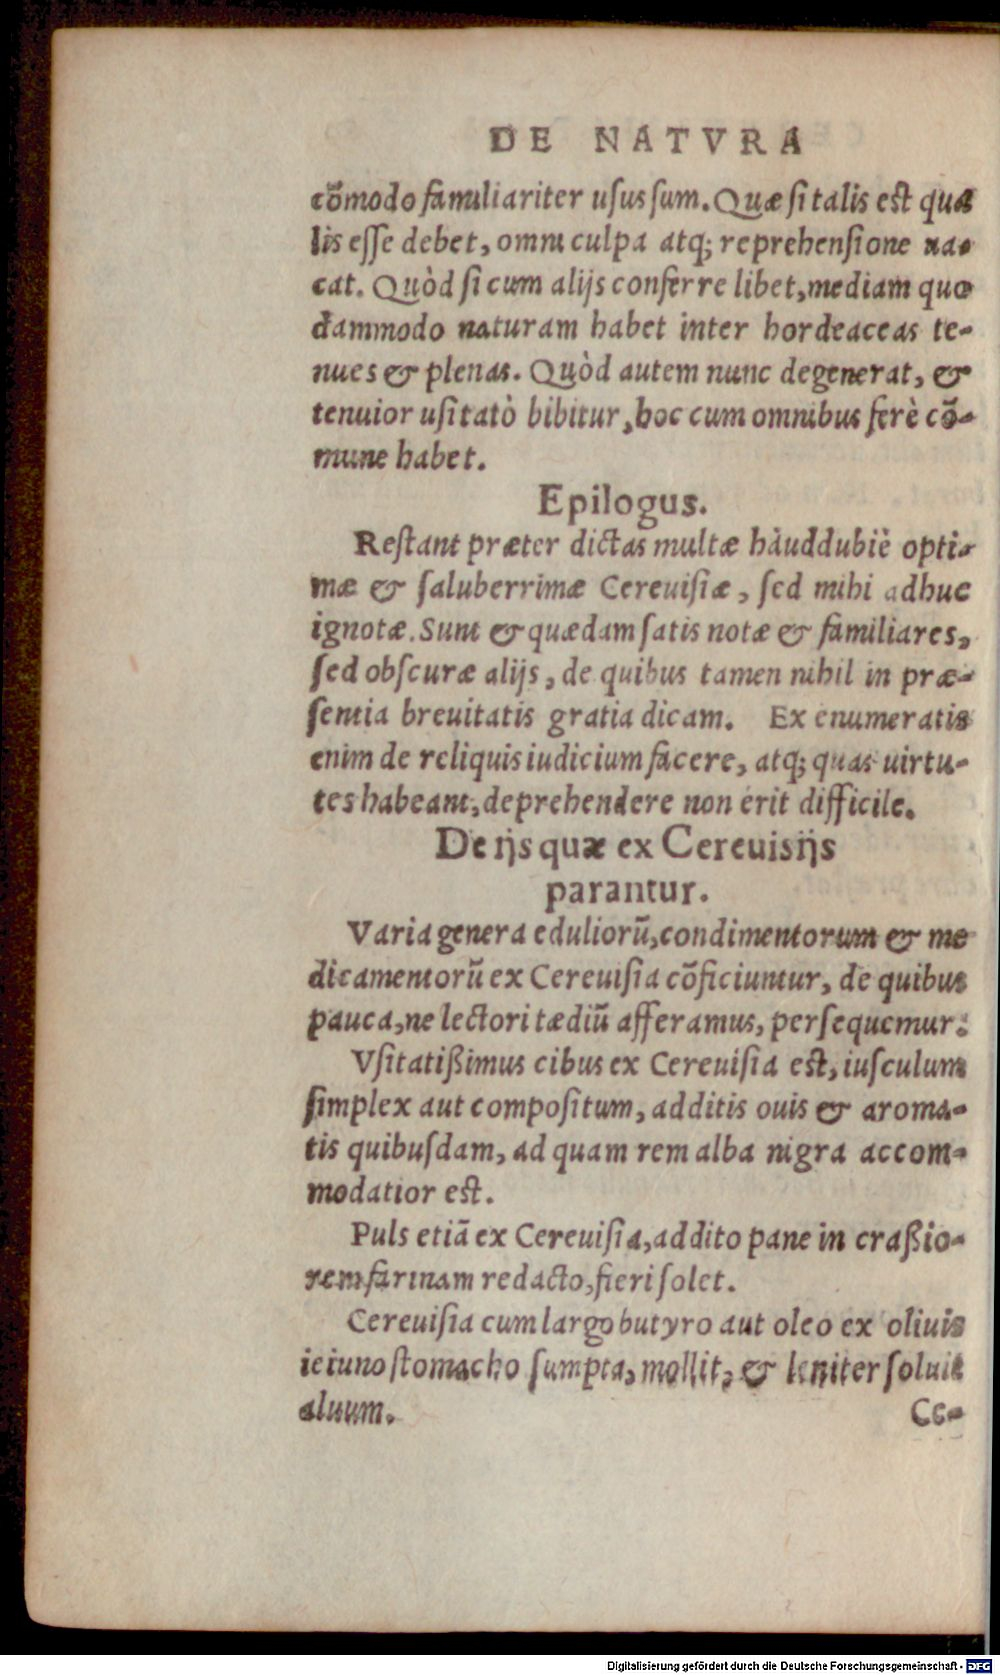 DE NATVRA
cõmodo familiariter uſus ſum. Quæ ſi talis est qua
lis eſſe debet, omni culpa atq; reprehenſione ua-
cat. Quòd ſi cum alijs conferre libet, mediam quo
dammodo naturam habet inter hordeaceas te-
nues & plenas. Quòd autem nunc degenerat, &
tenuior uſitatò bibitur, hoc cum omnibus ferè cõ-
mune habet.
Epilogus.
Reſtant præter dictas multæ hàuddubiè opti-
mæ & ſaluberrimæ Cereuiſiæ, ſed mihi adhuc
ignotæ. Sunt & quædam ſatis notæ & familiares,
ſed obſcuræ alijs, de quibus tamen nihil in præ-
ſentia breuitatis gratia dicam. Ex enumeratis
enim de reliquis iudicium facere, atq; quas uirtu-
tes habeant, deprehendere non erit difficile.
De ijs quæ ex Cereuisijs
parantur.
Varia genera eduliorũ, condimentorum & me
dicamentorũ ex Cereuiſia cõficiuntur, de quibus
pauca, ne lectori tædiũ afferamus, perſequemur.
Vſitatißimus cibus ex Cereuiſia est, iuſculum
ſimplex aut compoſitum, additis ouis & aroma-
tis quibuſdam, ad quam rem alba nigra accom-
modatior est.
Puls etiã ex Cereuiſia, addito pane in craßio-
rem farinam redacto, fieri ſolet.
Cereuiſia cum largo butyro aut oleo ex oliuis
ieiuno ſtomacho ſumpta, mollit, & leniter ſoluit
aluum.
Ce-
Digitalisierung gefördert durch die Deutsche Forschungsgemeinschaft - DFG